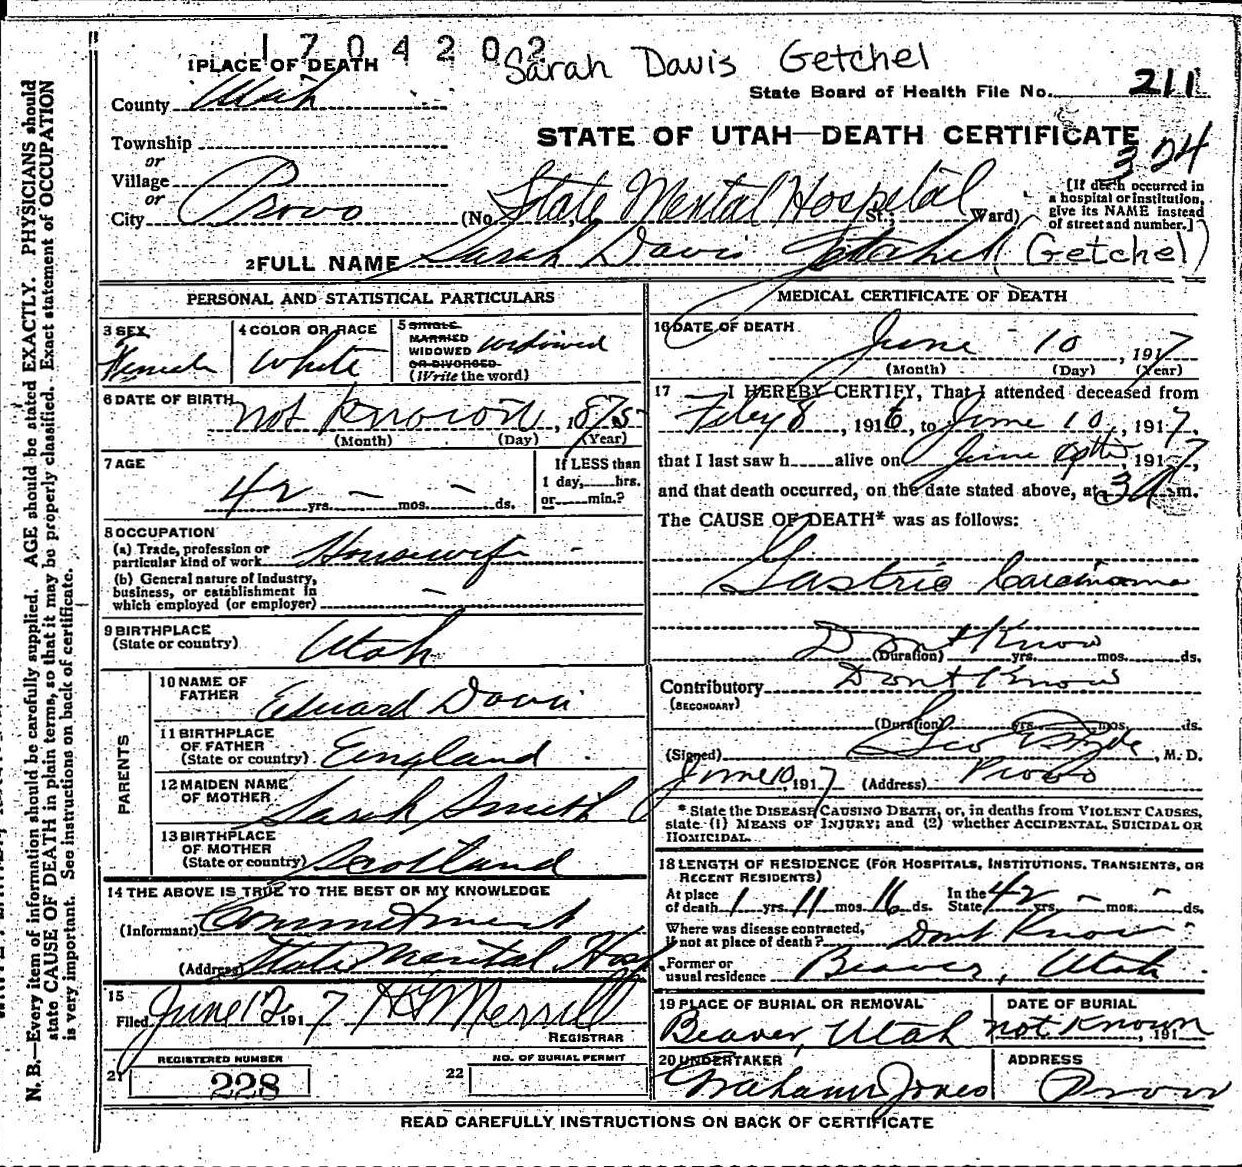 1704202
Sarah Davis Getchel
1 PLACE OF DEATH
State Board of Health File No. 211
County Utah
STATE OF UTAH—DEATH CERTIFICATE
324
Township
or
Village
or
City Provo (No. State Mental Hospital St.; Ward)
[If death occurred in
a hospital or institution,
give its NAME instead
of street and number.]
2 FULL NAME Sarah Davis (Getchel)
PERSONAL AND STATISTICAL PARTICULARS
3 SEX Female
4 COLOR OR RACE White
5 SINGLE
MARRIED
WIDOWED
OR DIVORCED
(Write the word) widowed
6 DATE OF BIRTH not Known, 1875
(Month) (Day) (Year)
7 AGE 42 yrs. — mos. — ds.
If LESS than
1 day, hrs.
or min.?
8 OCCUPATION
(a) Trade, profession or
particular kind of work Housewife -
(b) General nature of Industry,
business, or establishment in
which employed (or employer) —
9 BIRTHPLACE
(State or country) Utah
PARENTS
10 NAME OF
FATHER Edward Davis
11 BIRTHPLACE
OF FATHER
(State or country) England
12 MAIDEN NAME
OF MOTHER Sarah Smith
13 BIRTHPLACE
OF MOTHER
(State or country) Scotland
14 THE ABOVE IS TRUE TO THE BEST OF MY KNOWLEDGE
(Informant) Commitment
(Address) State Mental Hosp
15
Filed June 12 1917 Merrill
REGISTRAR
REGISTERED NUMBER
21 228
NO. OF BURIAL PERMIT
22
MEDICAL CERTIFICATE OF DEATH
16 DATE OF DEATH
June 10, 1917
(Month) (Day) (Year)
17 I HEREBY CERTIFY, That I attended deceased from
8, 1916, to June 10, 1917,
that I last saw h alive on June 1917,
and that death occurred, on the date stated above, at 3 A m.
The CAUSE OF DEATH* was as follows:
Gastric Carcinoma
Dont Know
(Duration) yrs. mos. ds.
Contributory Dont Know
(SECONDARY)
(Duration) yrs. mos. ds.
(Signed) Geo , M. D.
June 10, 1917 (Address) Provo
* State the DISEASE CAUSING DEATH, or, in deaths from VIOLENT CAUSES,
state (1) MEANS OF INJURY; and (2) whether ACCIDENTAL, SUICIDAL OR
HOMICIDAL.
18 LENGTH OF RESIDENCE (FOR HOSPITALS, INSTITUTIONS, TRANSIENTS, OR
RECENT RESIDENTS)
At place
of death 1 yrs 11 mos. 16 ds.
In the
State 42 yrs. - mos. - ds.
Where was disease contracted,
if not at place of death? Dont Know
Former or
usual residence Beaver, Utah
19 PLACE OF BURIAL OR REMOVAL
Beaver, Utah
DATE OF BURIAL
not Known, 191
20 UNDERTAKER
Graham Jones
ADDRESS
Provo
READ CAREFULLY INSTRUCTIONS ON BACK OF CERTIFICATE
N. B.—Every item of information should be carefully supplied. AGE should be stated EXACTLY. PHYSICIANS should
state CAUSE OF DEATH in plain terms, so that it may be properly classified. Exact statement of OCCUPATION
is very important. See instructions on back of certificate.